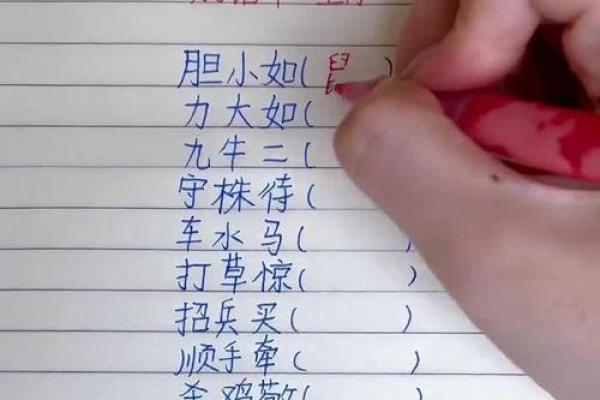 胆小如( )
力大如(
九牛二(
守株待(
车水马( )
打草惊( )
招兵买( )
顺手牵( )
杀鸡敬( )